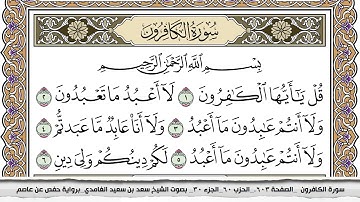 سُورَةُ الكَافِرُونَ
بِسْمِ اللَّهِ الرَّحْمَٰنِ الرَّحِيمِ
قُلْ يَٰٓأَيُّهَا ٱلْكَٰفِرُونَ ١ لَآ أَعْبُدُ مَا تَعْبُدُونَ ٢
وَلَآ أَنتُمْ عَٰبِدُونَ مَآ أَعْبُدُ ٣ وَلَآ أَنَا۠ عَابِدٌ مَّا عَبَدتُّمْ ٤
وَلَآ أَنتُمْ عَٰبِدُونَ مَآ أَعْبُدُ ٥ لَكُمْ دِينُكُمْ وَلِيَ دِينِ ٦
سورة الكافرون _الصفحة ٦٠٣_ الحزب ٦٠_ الجزء ٣٠_ بصوت الشيخ سعد بن سعيد الغامدي _برواية حفص عن عاصم